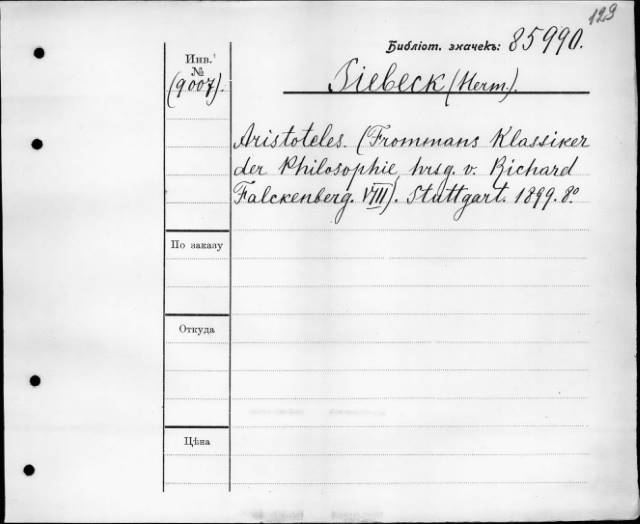 123
Библіот. значекъ: 85990.
Инв.
№
(9007).
Siebeck (Herm.).
Aristoteles. (Frommans Klassiker
der Philosophie, hrsg. v. Richard
Falckenberg. VIII). Stuttgart. 1899. 8º.
По заказу
Откуда
Цѣна